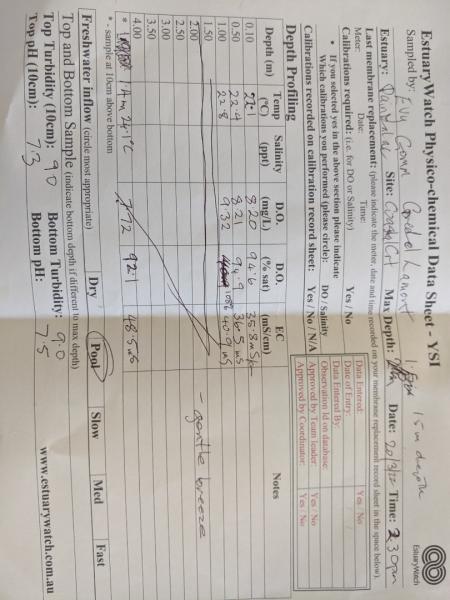 EstuaryWatch Physico-chemical Data Sheet - YSI
EstuaryWatch
Sampled by: Evy Gomm
1.5m depth
Estuary: Site: Max Depth: Date: 20/3/22 Time: 2 30pm
Last membrane replacement: (please indicate the meter, date and time recorded on your membrane replacement record sheet in the space below).
Meter: Date: Time:
Calibrations required: (i.e. for DO or Salinity) Yes / No
• If you selected yes in the above section please indicate
Which calibrations you performed (please circle): DO / Salinity
Calibrations recorded on calibration record sheet: Yes / No / N/A
Data Entered: Yes / No
Date of Entry: / /
Data Entered By:
Observation Id on database:
Approved by Team leader: Yes / No
Approved by Coordinator: Yes / No
Depth Profiling
Depth (m) Temp (°C) Salinity (ppt) D.O. (mg/L) D.O. (% sat) EC (mS/cm) Notes
0.10 22.1 8.20 94.6 35.8 mS
0.50 22.4 8.21 94.9 36.5 mS
1.00 22.8 9.32 108.6 40.9 mS
1.50
2.00 - gentle breeze
2.50
3.00
3.50
4.00
* 1.4m 24.1°C 7.72 92.1 48.5 mS
* - sample at 10cm above bottom
Freshwater inflow (circle most appropriate) Dry Pool Slow Med Fast
Top and Bottom Sample (indicate bottom depth if different to max depth)
Top Turbidity (10cm): 90 Bottom Turbidity: 9.0
Top pH (10cm): 7.3 Bottom pH: 7.5
www.estuarywatch.com.au